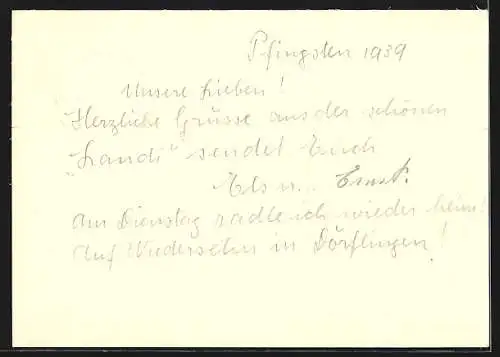 Pfingsten 1939
Unsere Lieben!
Herzliche Grüsse aus der schönen
"Landi" sendet Euch
Els u. Ernst.
am Dienstag radle ich wieder heim!
Auf Wiedersehn in Dörflingen!